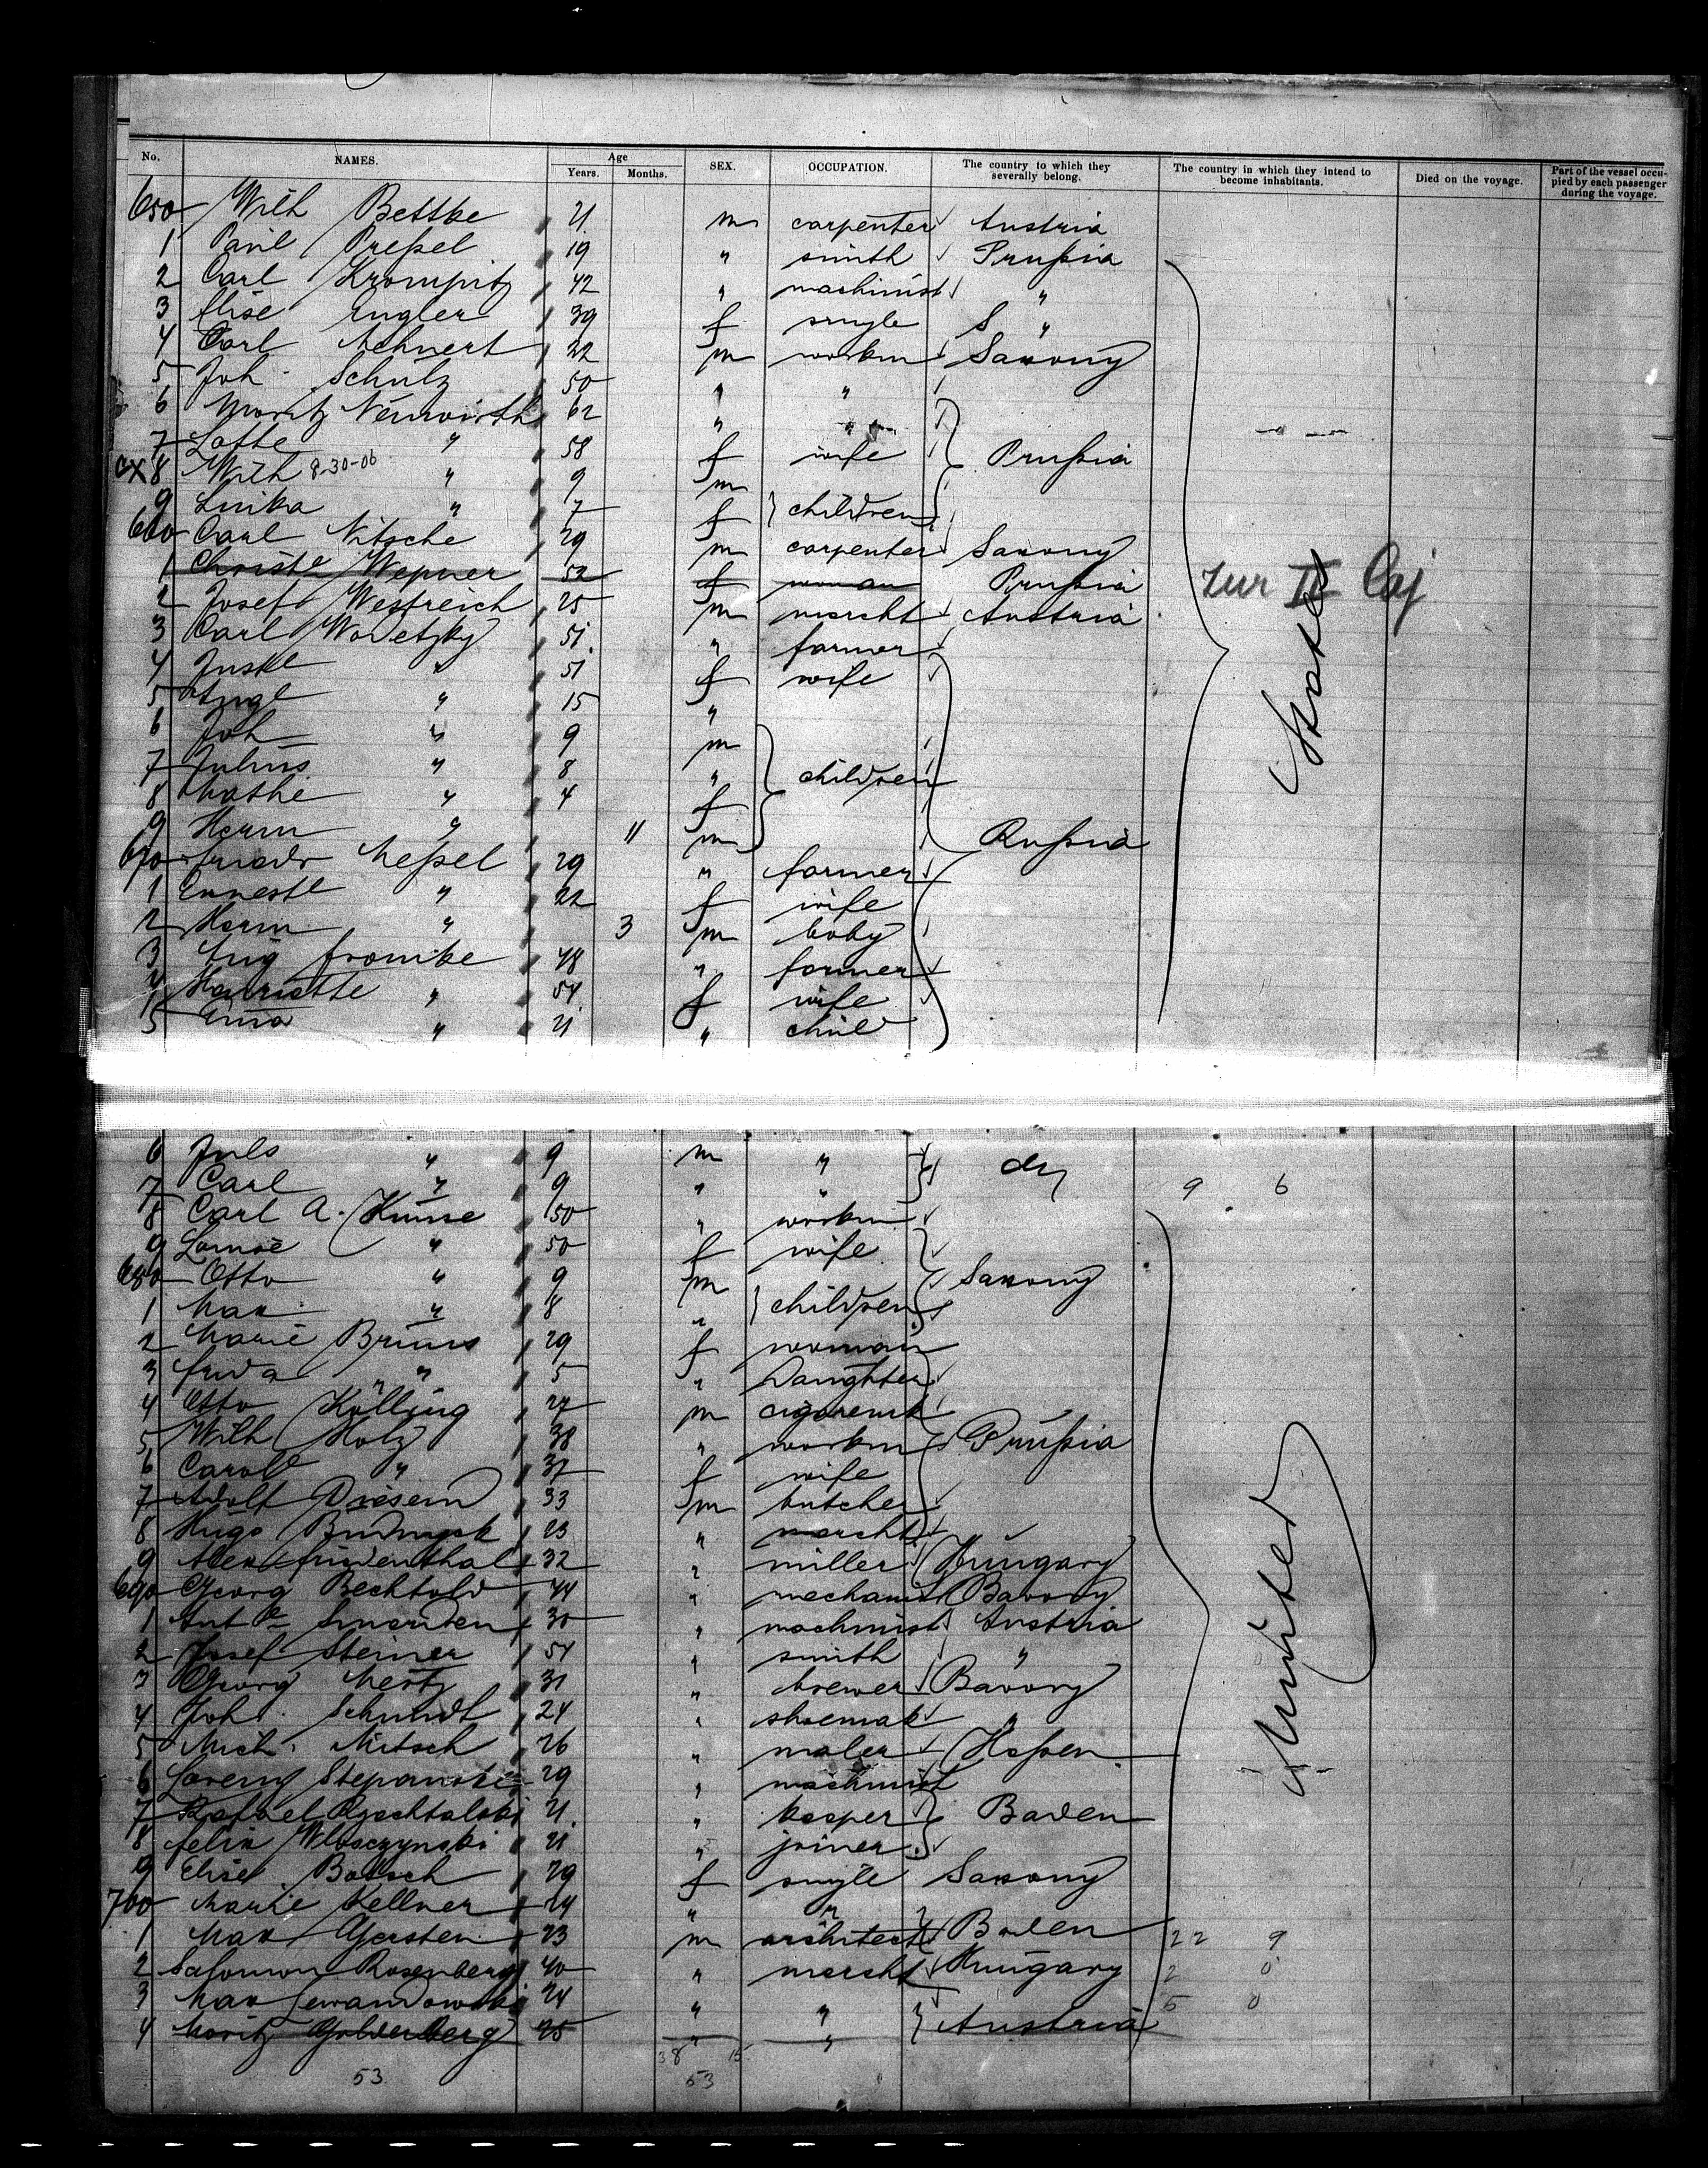 No. NAMES. Age Years. Months. SEX. OCCUPATION. The country to which they severally belong. The country in which they intend to become inhabitants. Died on the voyage. Part of the vessel occupied by each passenger during the voyage.
650 Wilh Bettke 21 m carpenter Austria
1 Paul Preßel 19 " smith Prußia
2 Carl Krompitz 42 " machinist "
3 Elise Engler 39 f single "
4 Carl Lehnert 22 m workm Saxony
5 Joh. Schulz 50 " "
6 Moritz Neuwirth 62 "
7 Lotte " 58 f wife Prußia
CX 8 Wilh 8-30-06 " 9 m
9 " 7 f children
660 Carl Nitsche 29 m carpenter Saxony
1 Christe Wepner 52 f woman Prußia zur II Caj
2 Josef Westreich 25 m marcht Austria
3 Carl Wodetzky 51 " farmer
4 Juste " 51 f wife
5 " 15 "
6 Joh " 9 m States
7 Julius " 8 " children
8 Mathe " 4 f
9 Herm " 11 m Rußia
670 Meßel 29 " farmer
1 Erneste " 22 f wife
2 Herm " 3 m baby
3 Aug Fromke 48 " farmer
4 Henriette " 54 f wife
5 " 21 " child
6 Juls " 9 m " do
7 Carl " 9 " " 9 6
8 Carl A. 50 " workm
9 " 50 f wife
680 Otto " 9 m Saxony
1 Max " 8 " children
2 Marie Bruns 29 f woman
3 Frida " 5 " Daughter
4 Otto Kölling 27 m
5 Wilh Holz 38 " workm Prußia
6 Carole " 37 f wife
7 Adolf 33 m butcher
8 Hugo 23 " marcht
9 Alex Friedenthal 32 " miller Hungary
690 Georg Bechtold 44 " mechanist Bavory
1 30 " machinist Austria United
2 Josef Steiner 54 " smith "
3 Georg Mertz 31 " brewer Bavory
4 Joh. Schmidt 24 " shoemak "
5 Mich. Nitsch 26 " maler Heßen
6 Stepanski 29 " machinist
7 21 " Baden
8 Felix 21 " joiner
9 Elise 29 f single Saxony
700 Marie Kellner 24 " "
1 Max Gersten 23 m architect Baden 22 9
2 Salomon Rosenberg 40 " marcht Hungary 2 0
3 Max Lewandowski 24 " " 5 0
4 Moritz Goldenberg 25 " " Austria
38 15
53 53